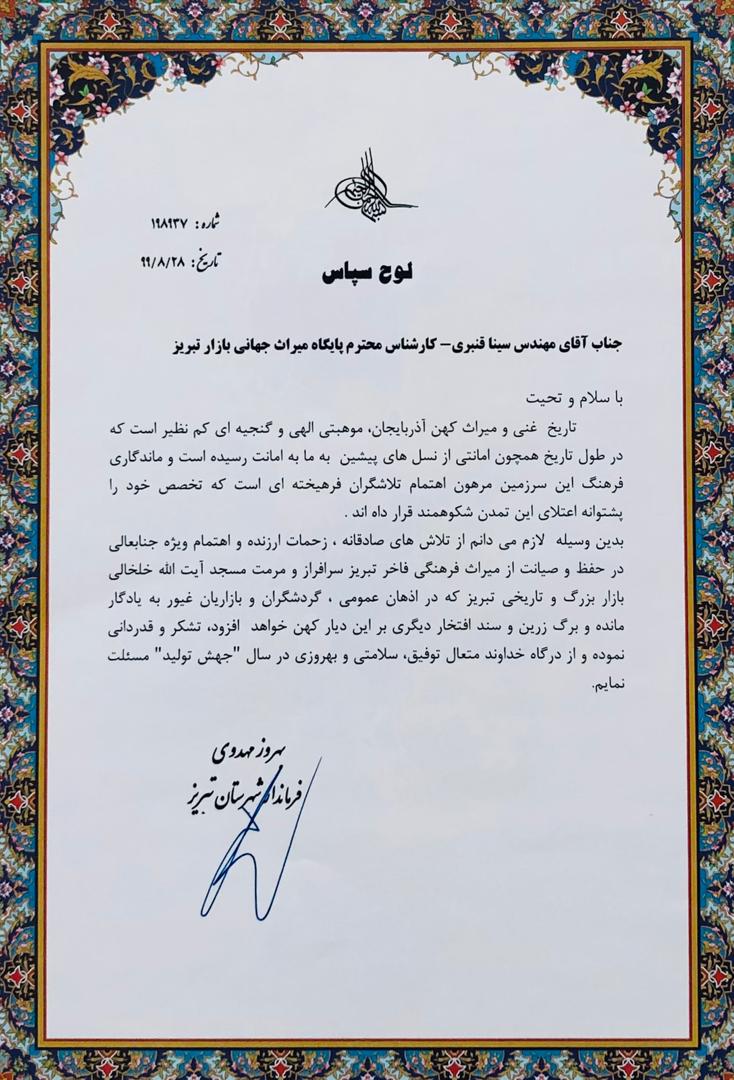 شماره: ۱۹۸۹۳۷
تاریخ: ۹۹/۸/۲۸
لوح سپاس
جناب آقای مهندس سینا قنبری- کارشناس محترم پایگاه میراث جهانی بازار تبریز
با سلام و تحیت
تاریخ غنی و میراث کهن آذربایجان، موهبتی الهی و گنجیه ای کم نظیر است که
در طول تاریخ همچون امانتی از نسل های پیشین به ما به امانت رسیده است و ماندگاری
فرهنگ این سرزمین مرهون اهتمام تلاشگران فرهیخته ای است که تخصص خود را
پشتوانه اعتلای این تمدن شکوهمند قرار داه اند .
بدین وسیله لازم می دانم از تلاش های صادقانه ، زحمات ارزنده و اهتمام ویژه جنابعالی
در حفظ و صیانت از میراث فرهنگی فاخر تبریز سرافراز و مرمت مسجد آیت الله خلخالی
بازار بزرگ و تاریخی تبریز که در اذهان عمومی ، گردشگران و بازاریان غیور به یادگار
مانده و برگ زرین و سند افتخار دیگری بر این دیار کهن خواهد افزود، تشکر و قدردانی
نموده و از درگاه خداوند متعال توفیق، سلامتی و بهروزی در سال "جهش تولید" مسئلت
نمایم.
بهروز مهدوی
فرماندار شهرستان تبریز